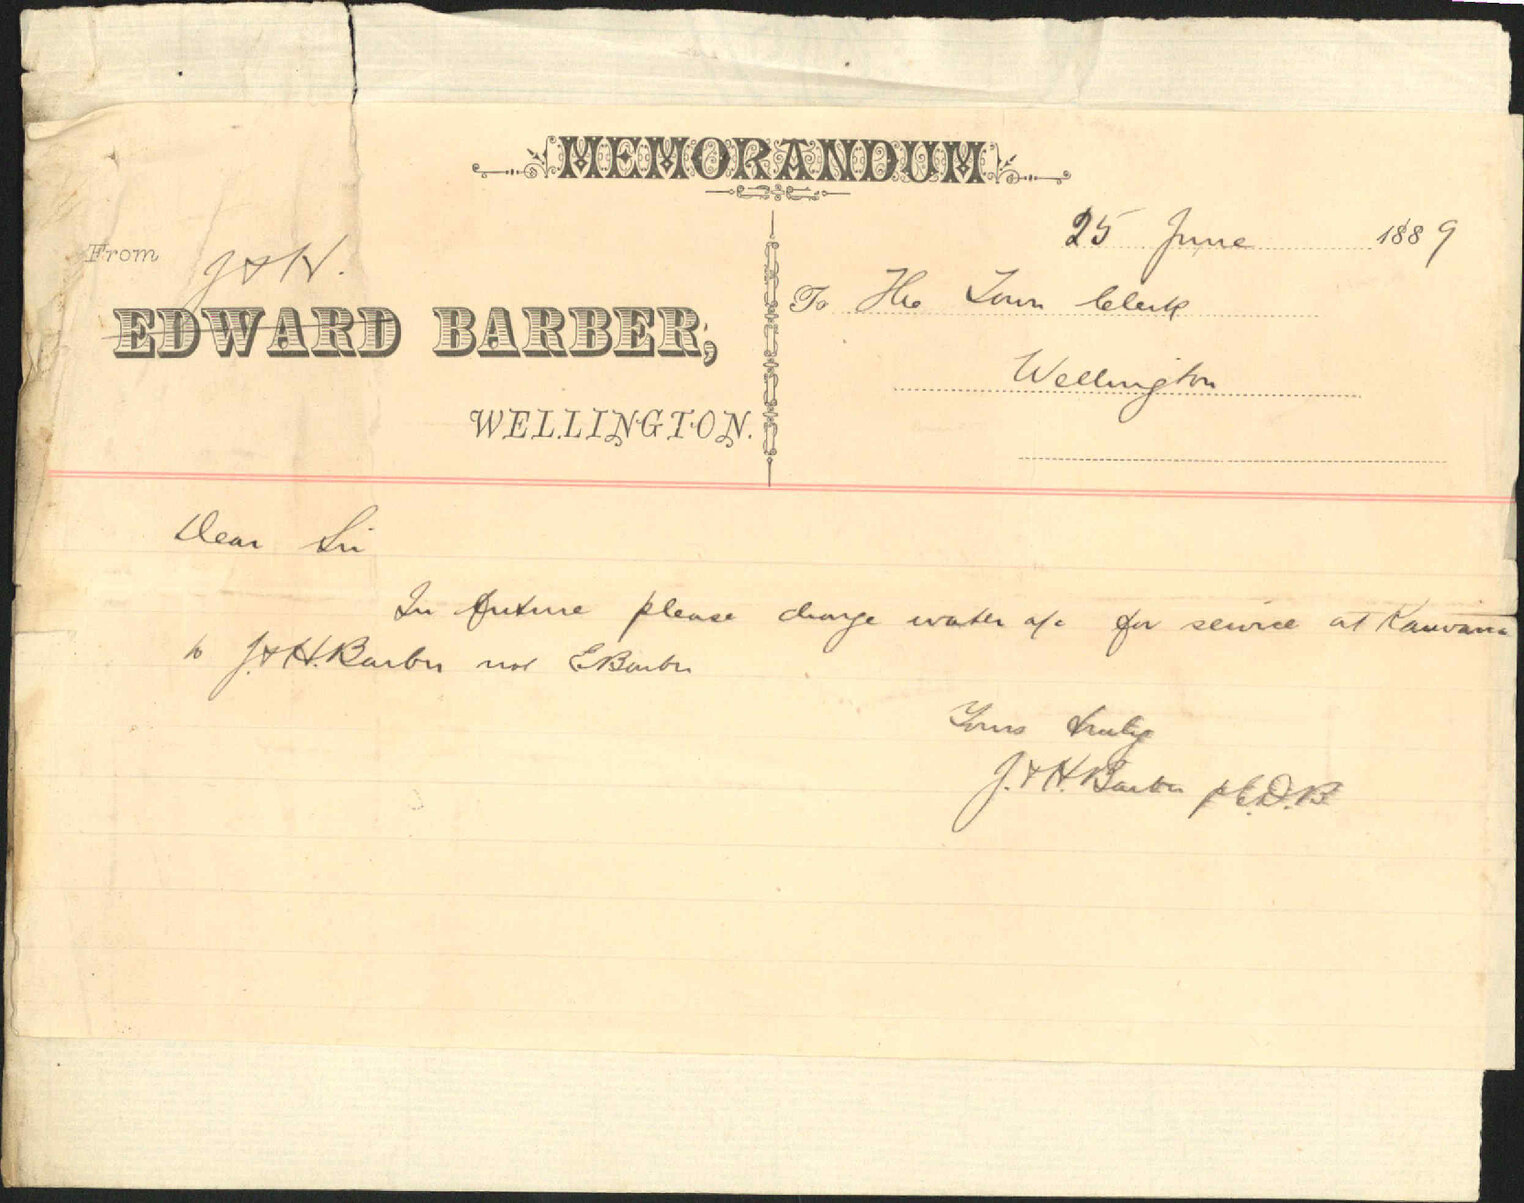 MEMORANDUM
25 June 1889
From J & H.
EDWARD BARBER,
WELLINGTON.
To The Town Clerk
Wellington
Dear Sir
In future please charge water a/c for service at
to J & H. Barber not E Barber
Yours truly
J. & H. Barber p E.D.B.